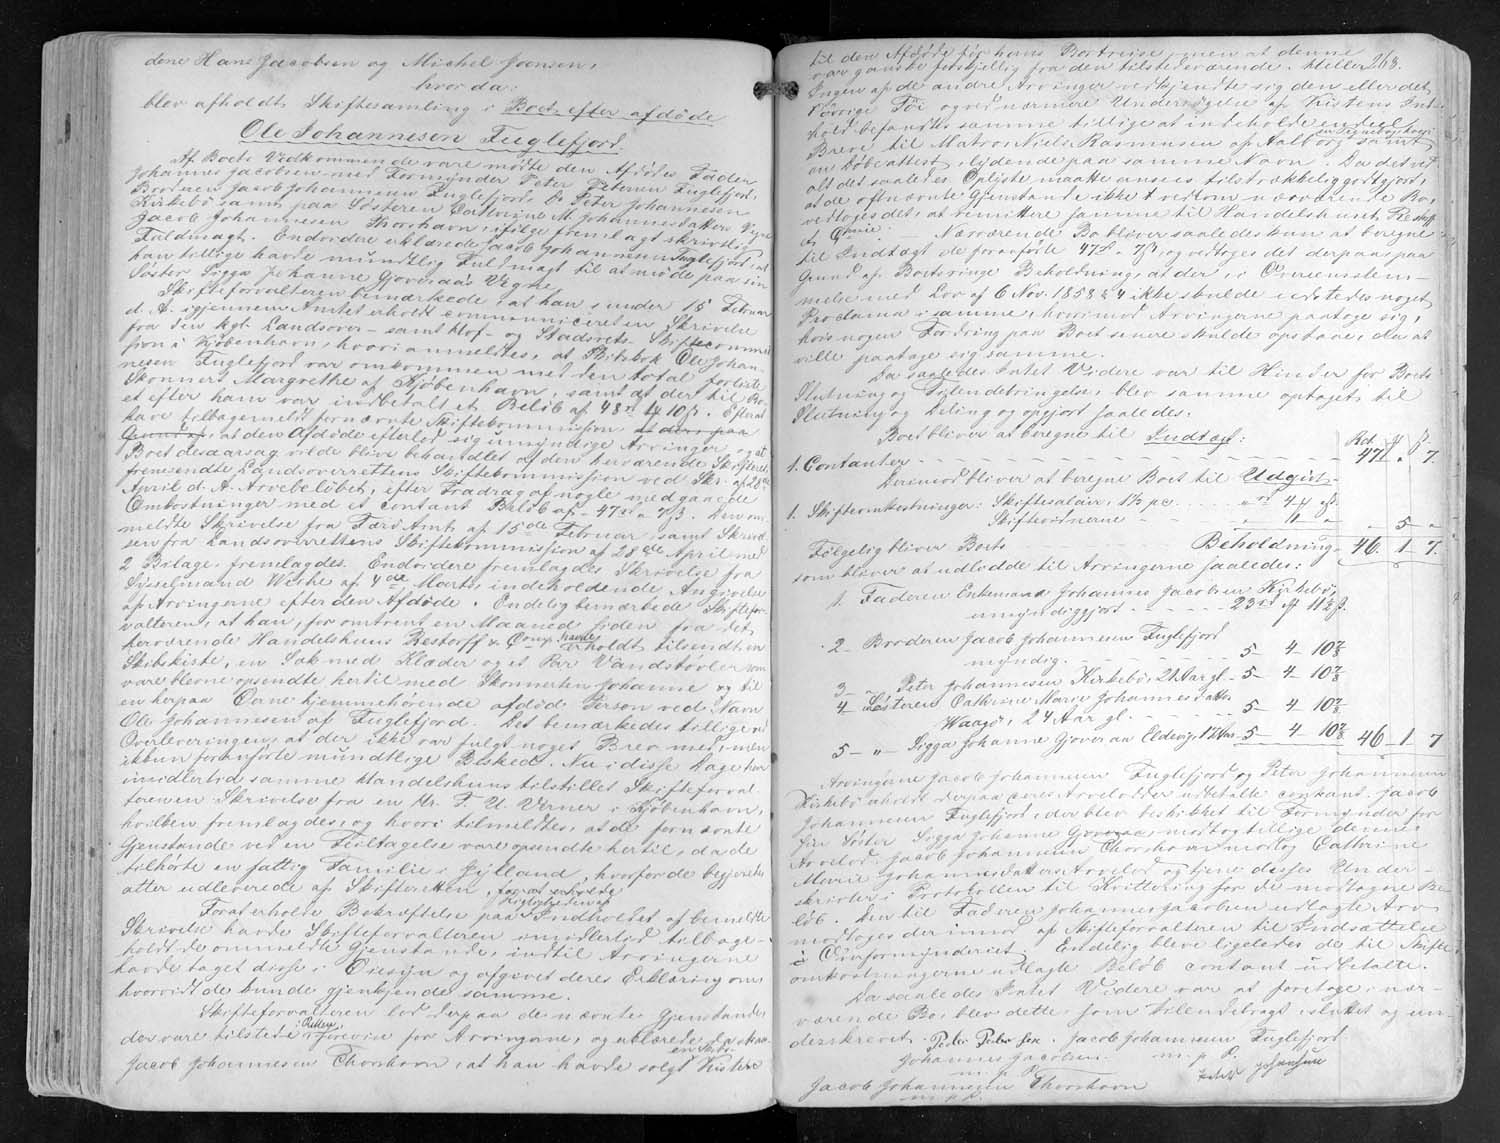 dene Hans Jacobsen og Michel Joensen,
hvorda:
blev afholdt Skiftesamling i Boet efter afdöde
Ole Johannesen Fuglefjord.
Af Boets Vedkommende vare mödte den Afdödes Fader
Johannes Jacobsen med Formynder Peter Petersen Fuglefjord,
Broderen Jacob Johannesen Fuglefjord, Peter Johannesen
Kirkebö samt paa Sösteren Cathrine M. Johannesdatters Vegne
Jacob Johannesen Thorshavn, ifölge fremlagt skrivtlig
Fuldmagt. Endvidere erklærede Jacob Johannesen Fuglefjord, at
han tillige havde mundtlig Fuldmagt til at möde paa sin
Söster Sigga Johanne Gjoveraas Vegne.
Skifteforvalteren bemærkede, at han under 15 Februar
d. A. igjennem Amtet erholdt communiceret en Skrivelse
fra den kgl. Landsover- samt Hof- og Stadsrets Skiftecommis
sion i Kjöbenhavn, hvori anmeldtes, at Skibskok Ole Johan-
nesen Fuglefjord var omkommen med den total forliste
Skonnert Margrethe af Kjöbenhavn, samt at der til Bo-
et efter ham var indbetalt et Belöb af 48 rd 4 ℳ 10 β. Efterat
have tilbagemeldt fornævnte Skiftekommission at der paa
Grund af, at den Afdöde efterlod sig umyndige Arvinger, og at
Boet desaarsag vilde blive behandlet af den herværende Skifteret,
fremsendte Landsoverrettens Skiftekommission ved Skr. af 28de
April d. A. Arvebelöbet, efter Fradrag af nogle medgaaede
Omkostninger med et contant Belöb af 47 rd " 7 β. Den om-
meldte Skrivelse fra Færö Amt af 15de Februar, samt Skrivel-
sen fra Landsoverrettens Skiftekommission af 28de April med
2 Bilage, fremlagdes. Endvidere fremlagdes Skrivelse fra
Sysselmand Winthe af 4de Marts, indeholdende Angivelse
af Arvingerne efter den Afdöde. Endelig bemærkede Skiftefor-
valteren, at han, for omtrent en Maaned siden fra det
herværende Handelshuus Restorff & Comp. havde erholdt tilsendt en
Skibskiste, en Sæk med Klæder og et Par Vandstövler som
vare blevne opsendte hertil med Skonnerten Johanne og til
en herpaa Öerne hjemmehörende afdöd Person ved Navn
Ole Johannesen af Fuglefjord. Det bemærkedes tillige ved
Overleveringen, at der ikke var fulgt noget Brev med, men
ikkun foranförte mundtlige Besked. Nu i disse Dage har
imidlertid samme Handelshuus tilstillet Skifteforval
teren en Skrivelse fra en Hr. F. U. Verner i Kjöbenhavn,
hvilken fremlagdes, og hvori tilmeldtes, at de fornævnte
Gjenstande ved en Feiltagelse vare opsendte hertil, da de
tilhörte en fattig Familie i Jylland, hvorfor de begjæredes
atter udleverede af Skifteretten,
For at erholde Bekræftelse paa Rigtigheden af Indholdet af bemeldte
Skrivelse havde Skifteforvalteren imidlertid tilbage-
holdt de ommeldte Gjenstande, indtil Arvingerne
havde taget disse i Öiesyn og afgivet deres Erklæring om
hvorvidt de kunde gjenkjende samme.
Skifteforvalteren lod derpaa de nævnte Gjenstande,
der vare tilstede i Retten, forevise for Arvingerne, og erklærede da
Jacob Johannesen Thorshavn, at han havde solgt en Skibskiste
268.
til den Afdöde för hans Bortreise, men at denne
var ganske forskjellig fra den tilstedeværende. Heller
Ingen af de andre Arvinger vedkjendte sig den eller det
övrige Töi og ved nærmere Undersögelse af Kistens Ind-
hold befandtes samme tillige at indeholde endeel
Breve til Matros Niels Rasmussen af Aalborg, en Tegnebog hvori samt
en Döbeattest, lydende paa samme Navn. Da det ved
alt det saaledes Oplyste maatte ansees tilstrækkelig godtgjort,
at de oftnævnte Gjenstande ikke vedkom nærværende Bo,
vedtoges det, at remittere samme til Handelshuset Restorff
et Comp. – Nærværende Bo bliver saaledes kun at beregne
til Indtægt de foranförte 47 rd " 7 β, og vedtoges det derpaa paa
Grund af Boets ringe Beholdning, at der, i Overeensstem-
melse med Lov af 6 Nov. 1858 § 4 ikke skulde udstedes noget
Proclama i samme, hvorimod Arvingerne paatoge sig,
hvis nogen Fordring paa Boet senere skulde opstaae, da at
ville paatage sig samme.
Da saaledes Intet Videre var til Hinder for Boets
Slutning og Tilendebringelse, blev samme optaget til
Slutning og Deling og opgjort saaledes:
Boet bliver at beregne til Indtægt: Rd ℳ β.
1. Contanter 47 " 7.
Derimod bliver at beregne Boet til Udgivt
1. Skifteomkostninger: Skiftesalair, 1½ pc. " rd 4 ℳ " β.
Skifteordnerne " 1 " " 5 "
Fölgelig bliver Boets Beholdning 46. 1 7.
som bliver at udlodde til Arvingerne saaledes:
1. Faderen Enkemand Johannes Jacobsen Kirkebö,
umyndiggjort 23 rd " ℳ 11½ β.
2 – Broderen Jacob Johannesen Fuglefjord
myndig. 5 – 4 – 10⅞
3 – " Peter Johannesen Kirkebö, 21 Aar gl. 5 – 4 – 10⅞
4 – Sösteren Cathrine Marie Johannesdatter
Waagö, 24 Aar gl. 5 – 4 – 10⅞
5 – " – Sigga Johanne Gjoveraa Eldevig, 17 Aar 5 – 4 – 10⅞ 46 – 1 7
Arvingerne Jacob Johannesen Fuglefjord og Peter Johannesen
Kirkebö erholdt derpaa deres Arvelodder udbetalte contant. Jacob
Johannesen Fuglefjord, der blev beskikket til Formynder for
sin Söster Sigga Johanne Gjoveraa, modtog tillige dennes
Arvelod. Jacob Johannesen Thorshavn modtog Cathrine
Marie Johannesdatters Arvelod og tjene disses Under-
skrivter i Protokollen til Kvittering for de modtagne Be-
löb. Den til Faderen Johannes Jacobsen udlagte Arv
modtoges derimod af Skifteforvalteren til Indsættelse
i Overformynderiet. Endelig bleve ligeledes de til Skifte-
omkostningerne udlagte Belöb contant udbetalte.
Da saaledes Intet Videre var at foretage i nær-
værende Bo, blev dette, som tilendebragt, sluttet og un-
derskrevet. Peder Peder sen. Jacob Johannesen Fuglefjord
Johannes Jacobsen m. p. P.
m. p. P. Peter Johansen
Jacob Johannesen Thorshavn
m. p. P.